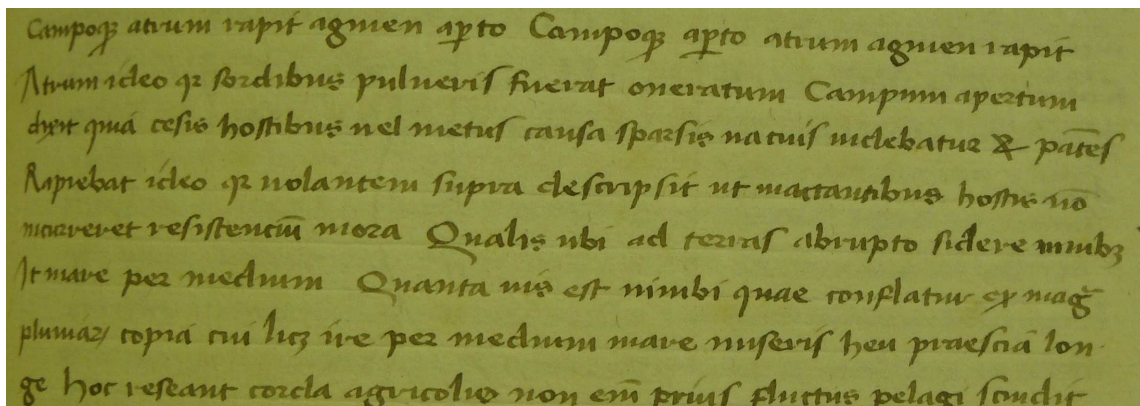 Campoqꝫ atrum rapit agmen apto Campoqꝫ apto atrum agmen rapit
Atrum ideo qr sordibus pulueris fuerat oneratum Campum apertum
dixit quia cesis hostibus uel metus causa sparsis uacuus uidebatur & patēs
Rapiebat ideo qr uolantem supra descripsit ut mactantibus hostis nō
incurreret resistenciū mora Qualis ubi ad terras abrupto sidere nimbꝫ
It mare per medium Quanta uis est nimbi quae conflatur ex mag̅
pluuiaꝝ copia cui licꝫ ire per medium mare miseris heu praescia lon
ge hoc reseant corda agricolis non em̅ prius fluctus pelagi scindit